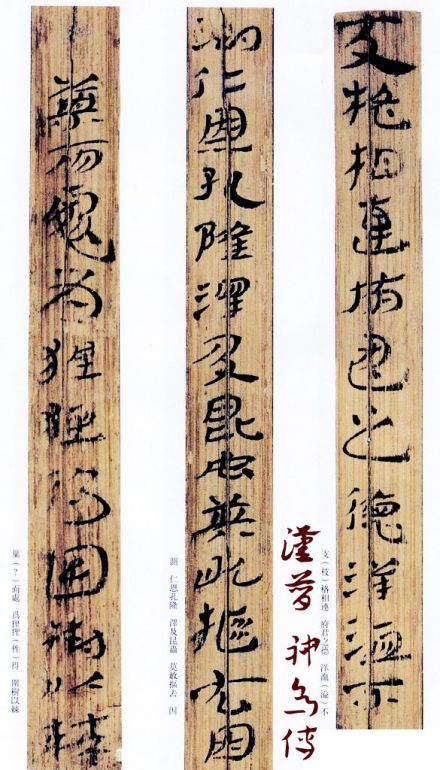 支格相連府君之德洋溢不
支（枝）格相連　府君之德　洋洫（溢）不
漢簡 神烏傅
測仁恩孔隆澤及昆虫莫敢摳去因
測　仁恩孔隆　澤及昆蟲　莫敢摳去　因
巢而處為狸狌得圍樹以棘
巢（？）而處　爲狸狌（性）得　圍樹以棘